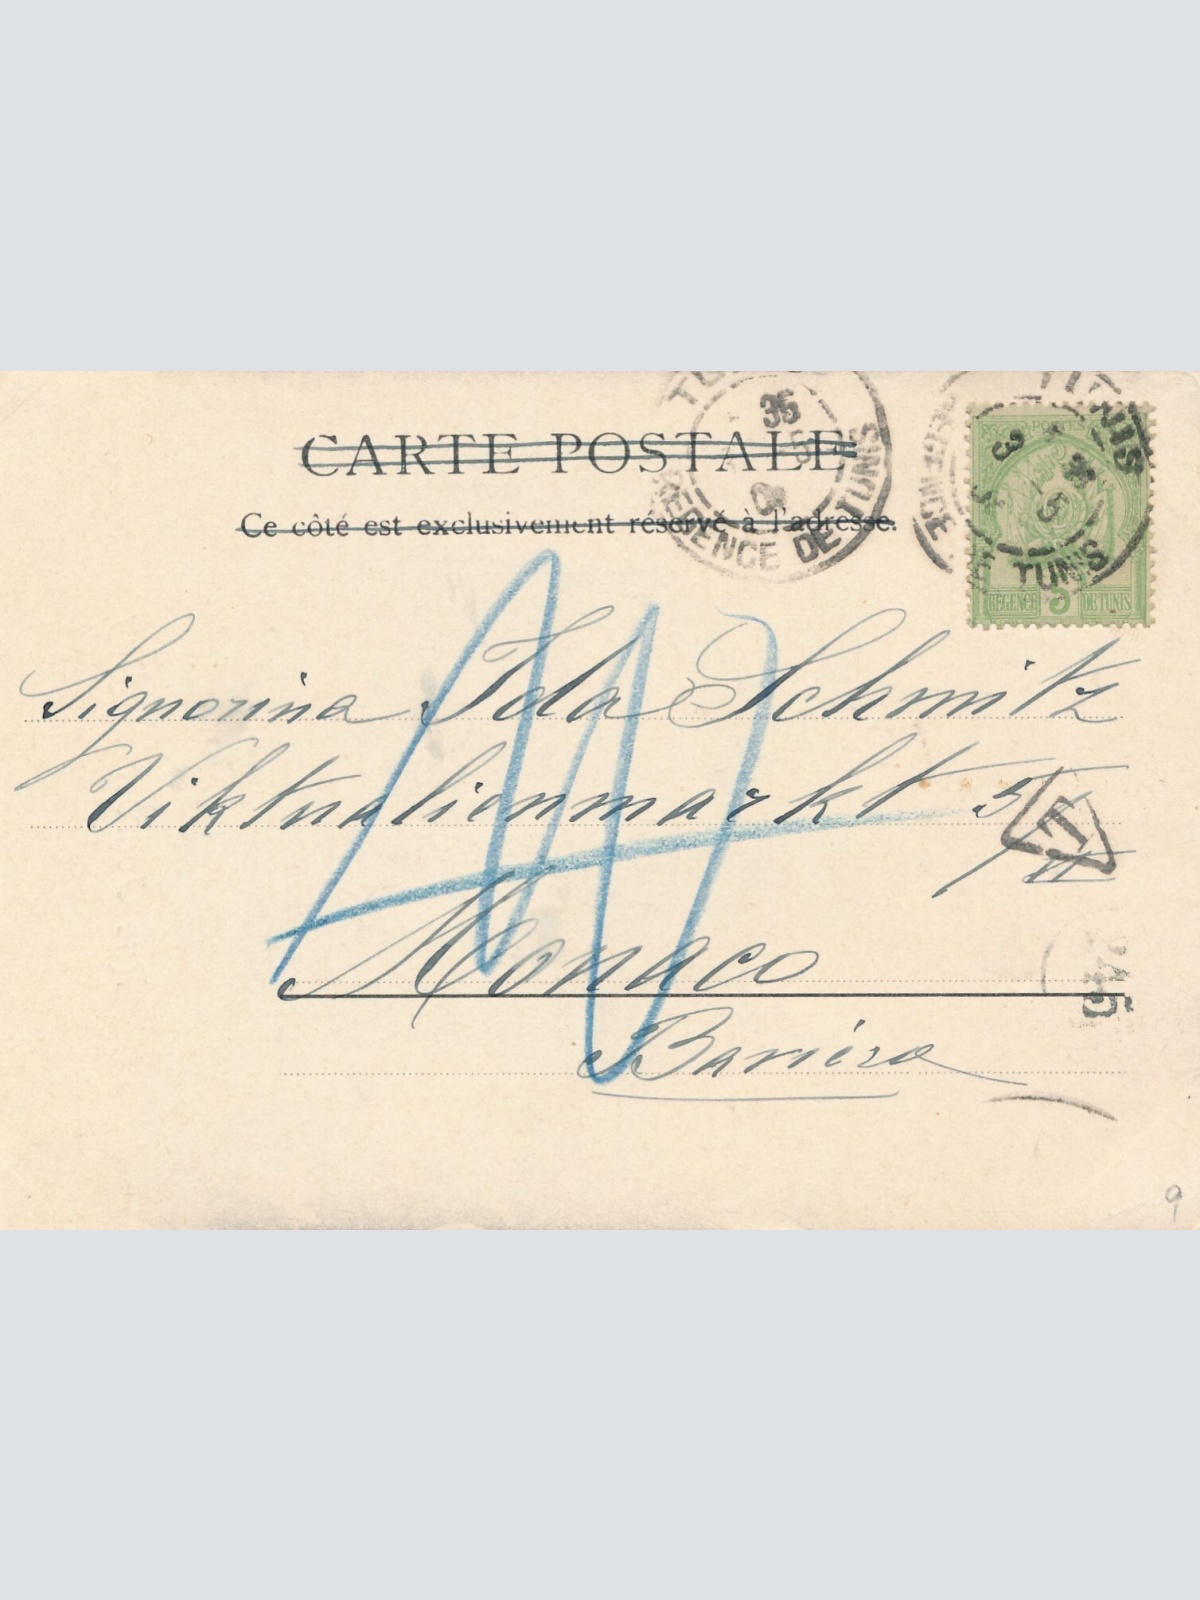 CARTE POSTALE
Ce côté est exclusivement réservé à l'adresse.
TUNIS
REGENCE DE TUNIS
35
TUNIS
REGENCE DE TUNIS
3
5
POSTES
REGENCE 5 DE TUNIS
Signorina Ida Schmitz
Viktualienmarkt 5/II
T
Monaco
Baviera
5
9